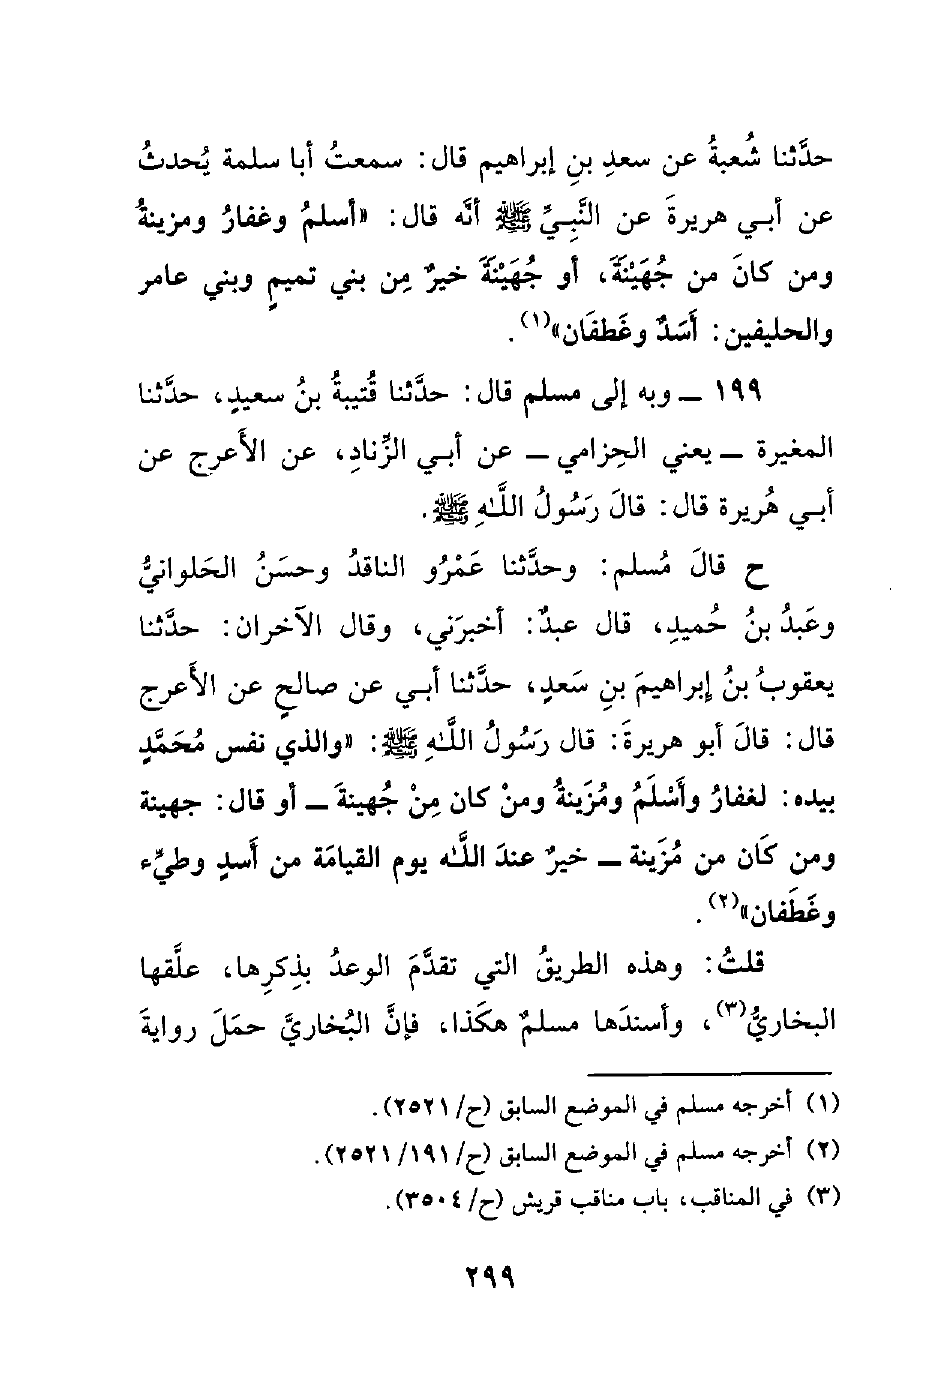 حدَّثنا شُعبةُ عن سعدِ بنِ إبراهيم قال: سمعتُ أبا سلمة يُحدثُ
عن أبـي هريرةَ عن النَّبِـيِّ ﷺ أنَّه قال: «أسلمُ وغفارُ ومزينةُ
ومن كانَ من جُهَيْنَةَ، أو جُهَيْنَةَ خيرٌ مِن بني تميمٍ وبني عامر
والحليفين: أَسَدٌ وغَطفَان»(١).
١٩٩ ــ وبه إلى مسلم قال: حدَّثنا قُتيبةُ بنُ سعيدٍ، حدَّثنا
المغيرة ــ يعني الحِزامي ــ عن أبـي الزِّنادِ، عن الأَعرج عن
أبـي هُريرة قال: قالَ رَسُولُ اللَّهِ ﷺ.
ح قالَ مُسلم: وحدَّثنا عَمْرُو الناقدُ وحسَنُ الحَلوانيُّ
وعَبدُ بنُ حُميدٍ، قال عبدٌ: أخبرَني، وقال الآخران: حدَّثنا
يعقوبُ بنُ إبراهيمَ بنِ سَعدٍ، حدَّثنا أبـي عن صالحٍ عن الأَعرج
قال: قالَ أبو هريرةَ: قال رَسُولُ اللَّهِ ﷺ: «والذي نفس مُحَمَّدٍ
بيده: لغفارُ وأَسْلَمُ ومُزَينةُ ومنْ كان مِنْ جُهينةَ ــ أو قال: جهينة
ومن كَان من مُزَينة ــ خيرٌ عندَ اللَّه يوم القيامَة من أَسدٍ وطيِّء
وغَطَفان»(٢).
قلتُ: وهذه الطريقُ التي تقدَّمَ الوعدُ بذِكرِها، علَّقها
البخاريُّ(٣)، وأسندَها مسلمٌ هكَذا، فإنَّ البُخاريَّ حمَلَ روايةَ
(١) أخرجه مسلم في الموضع السابق (ح/ ٢٥٢١).
(٢) أخرجه مسلم في الموضع السابق (ح/ ١٩١/ ٢٥٢١).
(٣) في المناقب، باب مناقب قريش (ح/ ٣٥٠٤).
٢٩٩